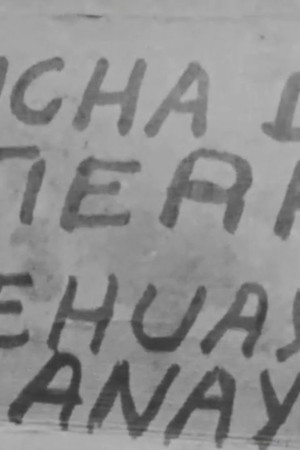 UCHA D
TIERR
EHUAS
ANAY